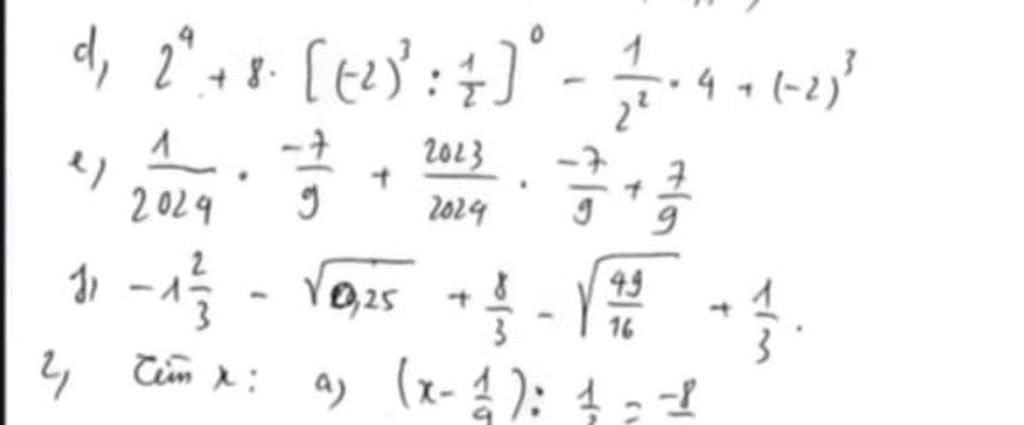 d, 2⁴ + 8 · [(-2)³ : 1/2]⁰ - 1/2² · 4 + (-2)³
e) 1/2024 · -7/9 + 2023/2024 · -7/9 + 7/9
f) -1 2/3 - √0,25 + 8/3 - √(49/16) + 1/3.
2, Tìm x: a) (x - 1/9) : 1/ = -8/